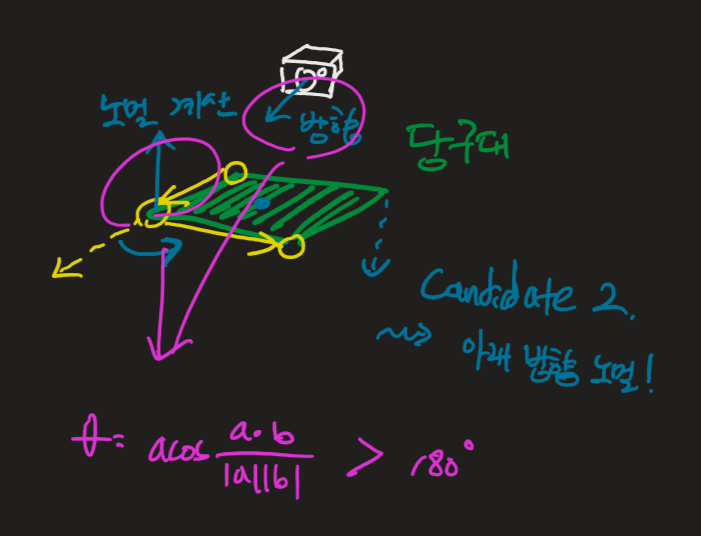 노멀 계산
방향
당구대
Candidate 2.
~> 아래 방향 노멀!
θ = acos a·b / |a||b| > 180°